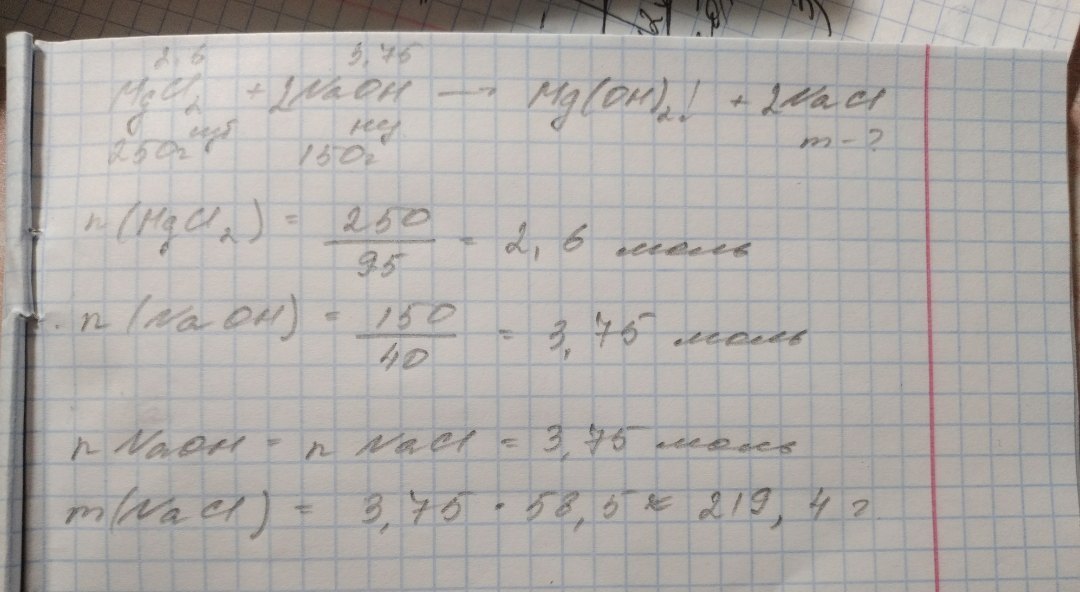 2,6 3,75
MgCl₂ + 2NaOH → Mg(OH)₂↓ + 2NaCl
изб нед m - ?
250г 150г
n(MgCl₂) = 250/95 = 2,6 моль
n(NaOH) = 150/40 = 3,75 моль
n NaOH = n NaCl = 3,75 моль
m(NaCl) = 3,75 · 58,5 ≈ 219,4 г